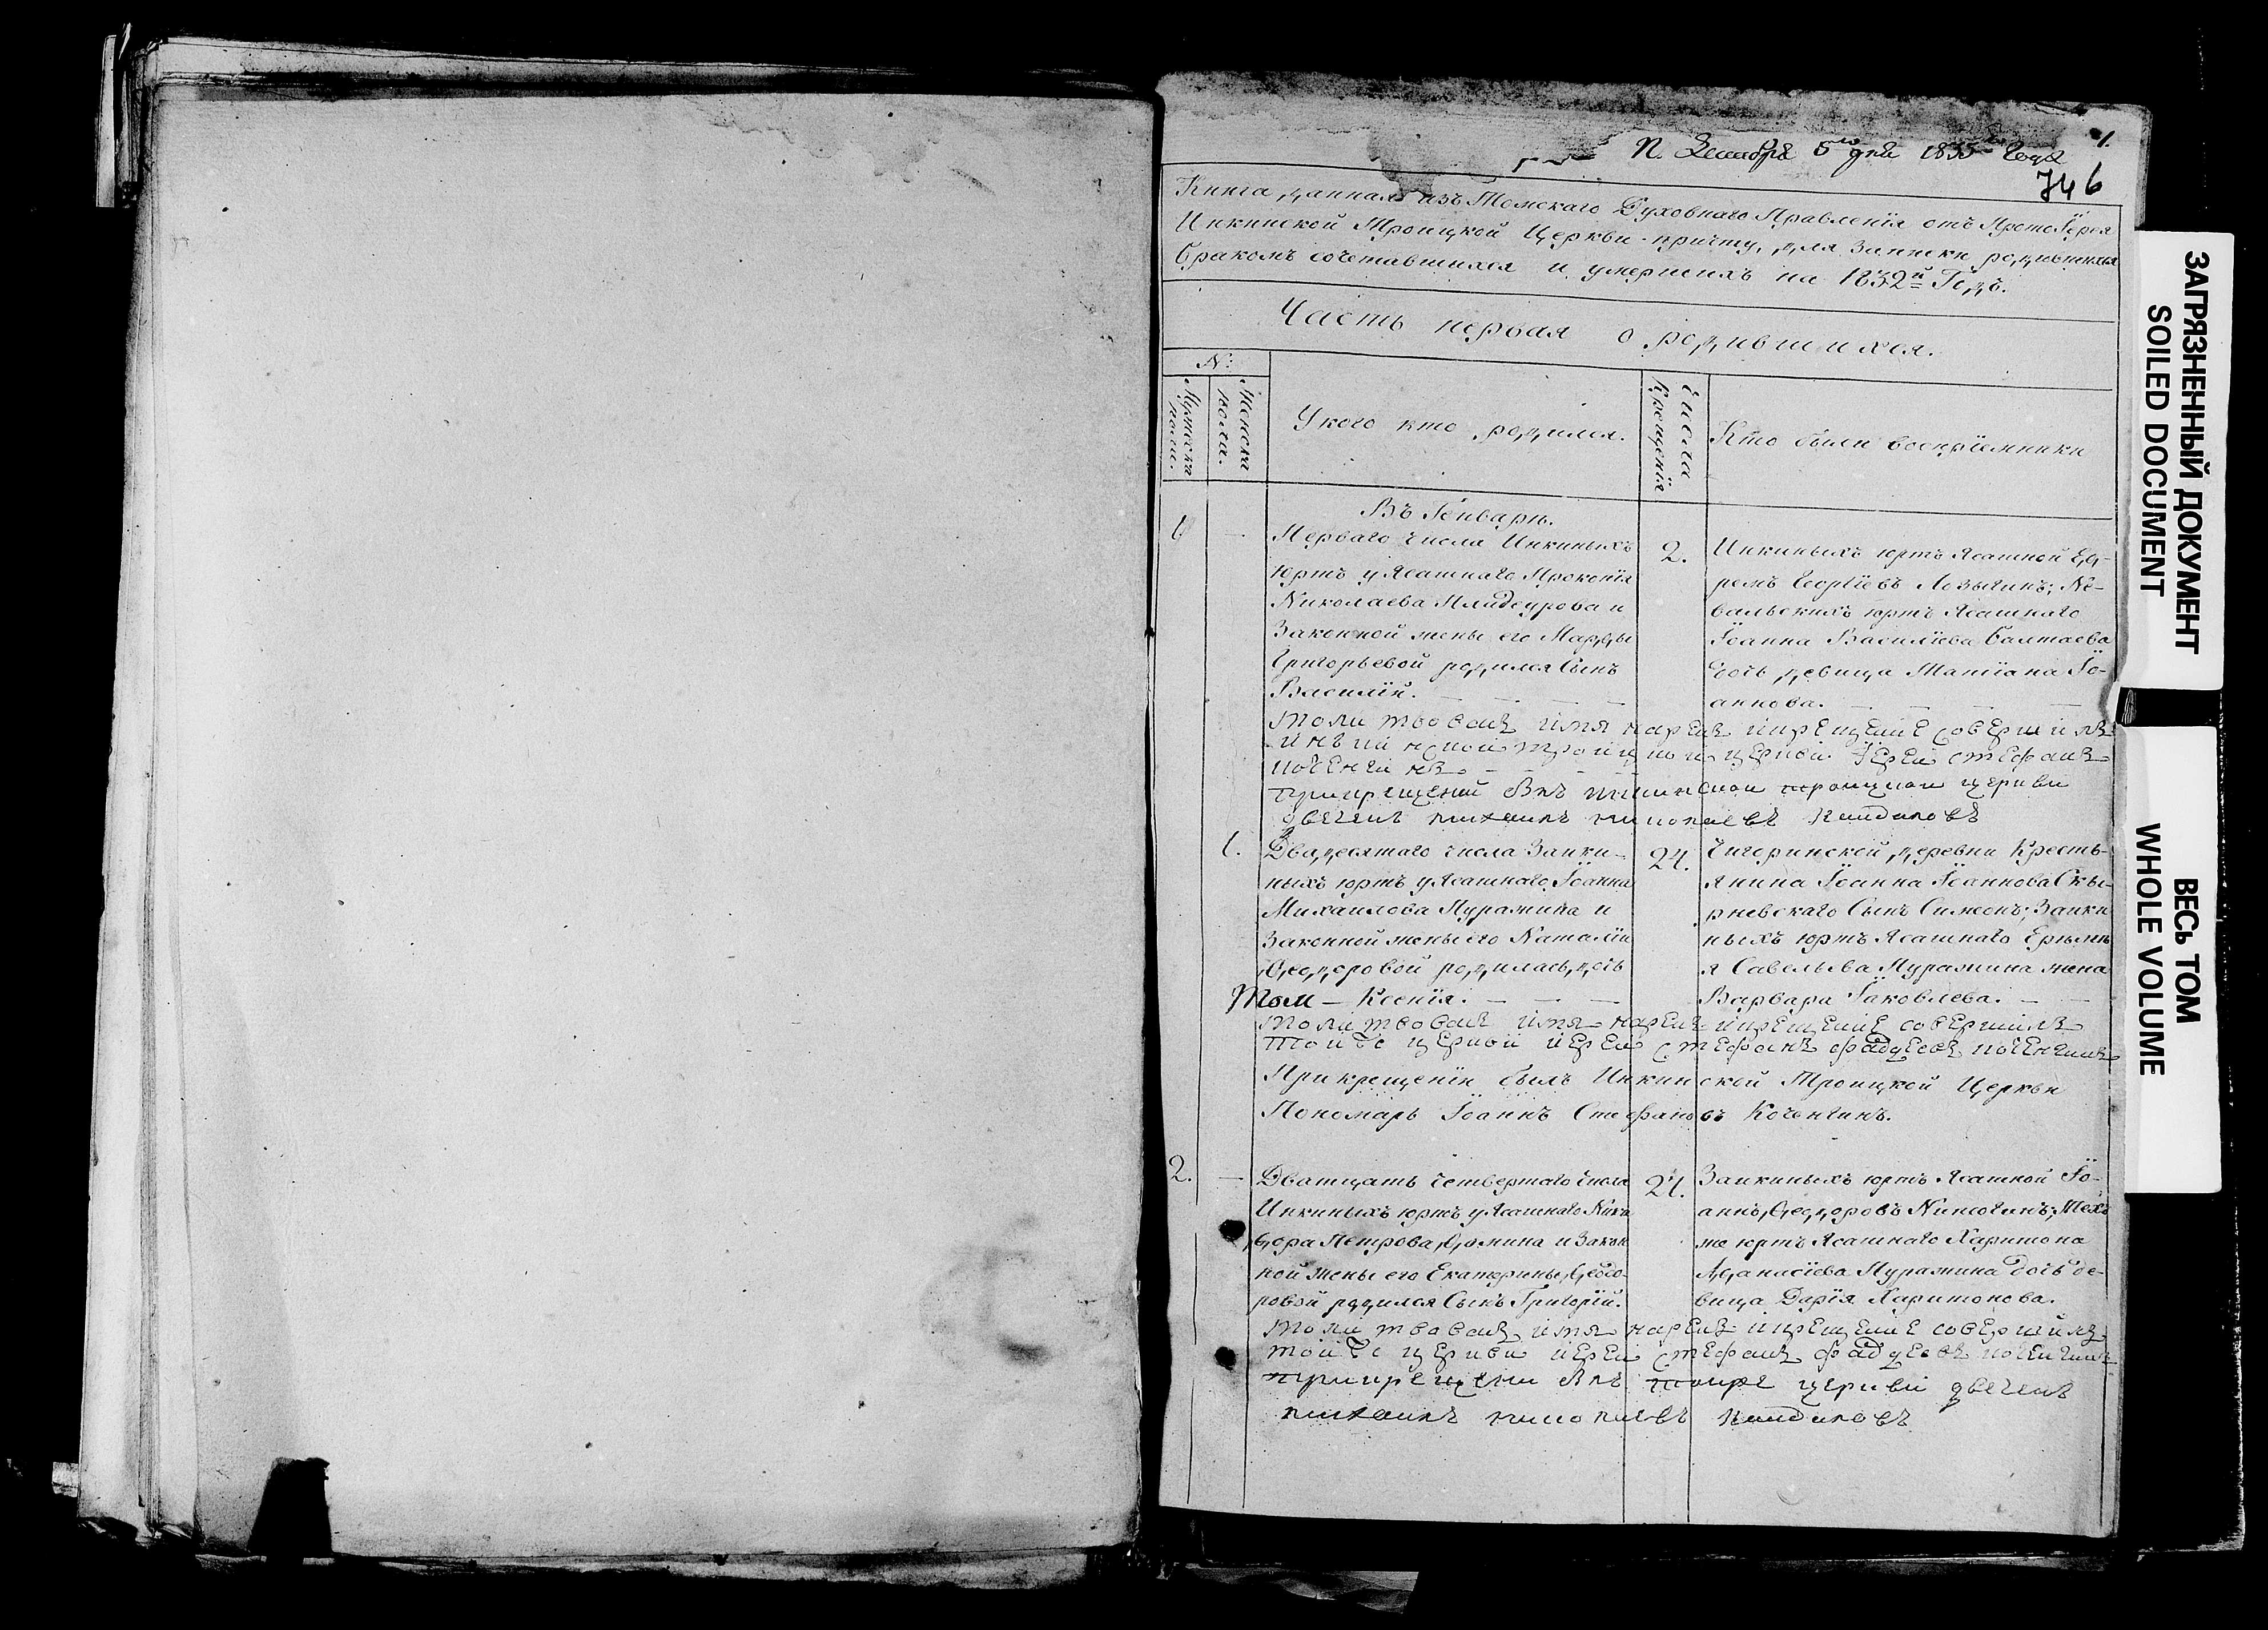 1.
5го дня 1835 года
746
Книга, данная изъ Томскаго Духовнаго Правленія отъ ПротоІерея
Инкинской Троицкой Церкви причту, для записки родившихся
бракомъ сочетавшихся и умершихъ на 1832й Годъ.
Часть первая о родившихся.
№:
Мужеска пола.
Женска пола.
У кого кто родился.
Числа Крещенія
Кто были воспріемники
Въ Генваре.
1 — Перваго числа Инкиныхъ
Юртъ у Ясашнаго Прокопія
Николаева и
Законной жены его Марфы
Григорьевой родился Сынъ
Василій. — — —
2. Инкиныхъ юртъ Ясашной Еф-
ремъ Георгіевъ Лозычинъ;
вальскихъ юртъ Ясашнаго
Іоанна Василіева Балтаева
дочь девица Татіана Іо-
аннова. — — —
молитвовалъ имя нарекъ икрещеніе совершилъ
инкинской троицкой церкви Іерей стефанъ
коченгинъ — — —
прикрещеніи былъ инкинской троицкой церкви
дьячекъ михаилъ николаевъ
1. Двадесятаго числа Заики-
ныхъ юртъ у Ясашнаго Іоанна
Михаилова Муражина и
Законной жены его Наталіи
Феодоровой родилась дочь
Том — Ксенія. — — —
24. Чигоринской деревни Кресть-
янина Іоанна Іоаннова Скы-
рневскаго Сынъ Симеонъ; Заики
ныхъ юртъ Ясашнаго Ереме
я Савельева Муражина жена
Варвара Іаковлева. — —
молитвовалъ имя нарекъ икрещеніе совершилъ
тойже церкви иерей стефанъ фадеевъ коченгинъ
При крещеніи былъ Инкинской Троицкой Церкви
Пономарь Іоаннъ Стефановъ Коченгинъ.
2. — Дватцать четвертаго числа
Инкиныхъ юртъ у Ясашнаго Ники
фора Петрова Фомина и Закон
ной жены его Екатерины Феодо-
ровой родился Сынъ Григорій.
24. Заикиныхъ юртъ Ясашной Іо-
аннъ Феодоровъ; Техъ
же юртъ Ясашнаго Харитона
Афанасіева Муражина дочь де-
вица Дарія Харитонова.
молитвовалъ имя нарекъ икрещеніе совершилъ
тойже церкви иерей стефанъ фадеевъ коченгинъ
прикрещеніи былъ тоиже церкви дьячекъ
михаилъ николаевъ
ЗАГРЯЗНЕННЫЙ ДОКУМЕНТ
SOILED DOCUMENT
ВЕСЬ ТОМ
WHOLE VOLUME